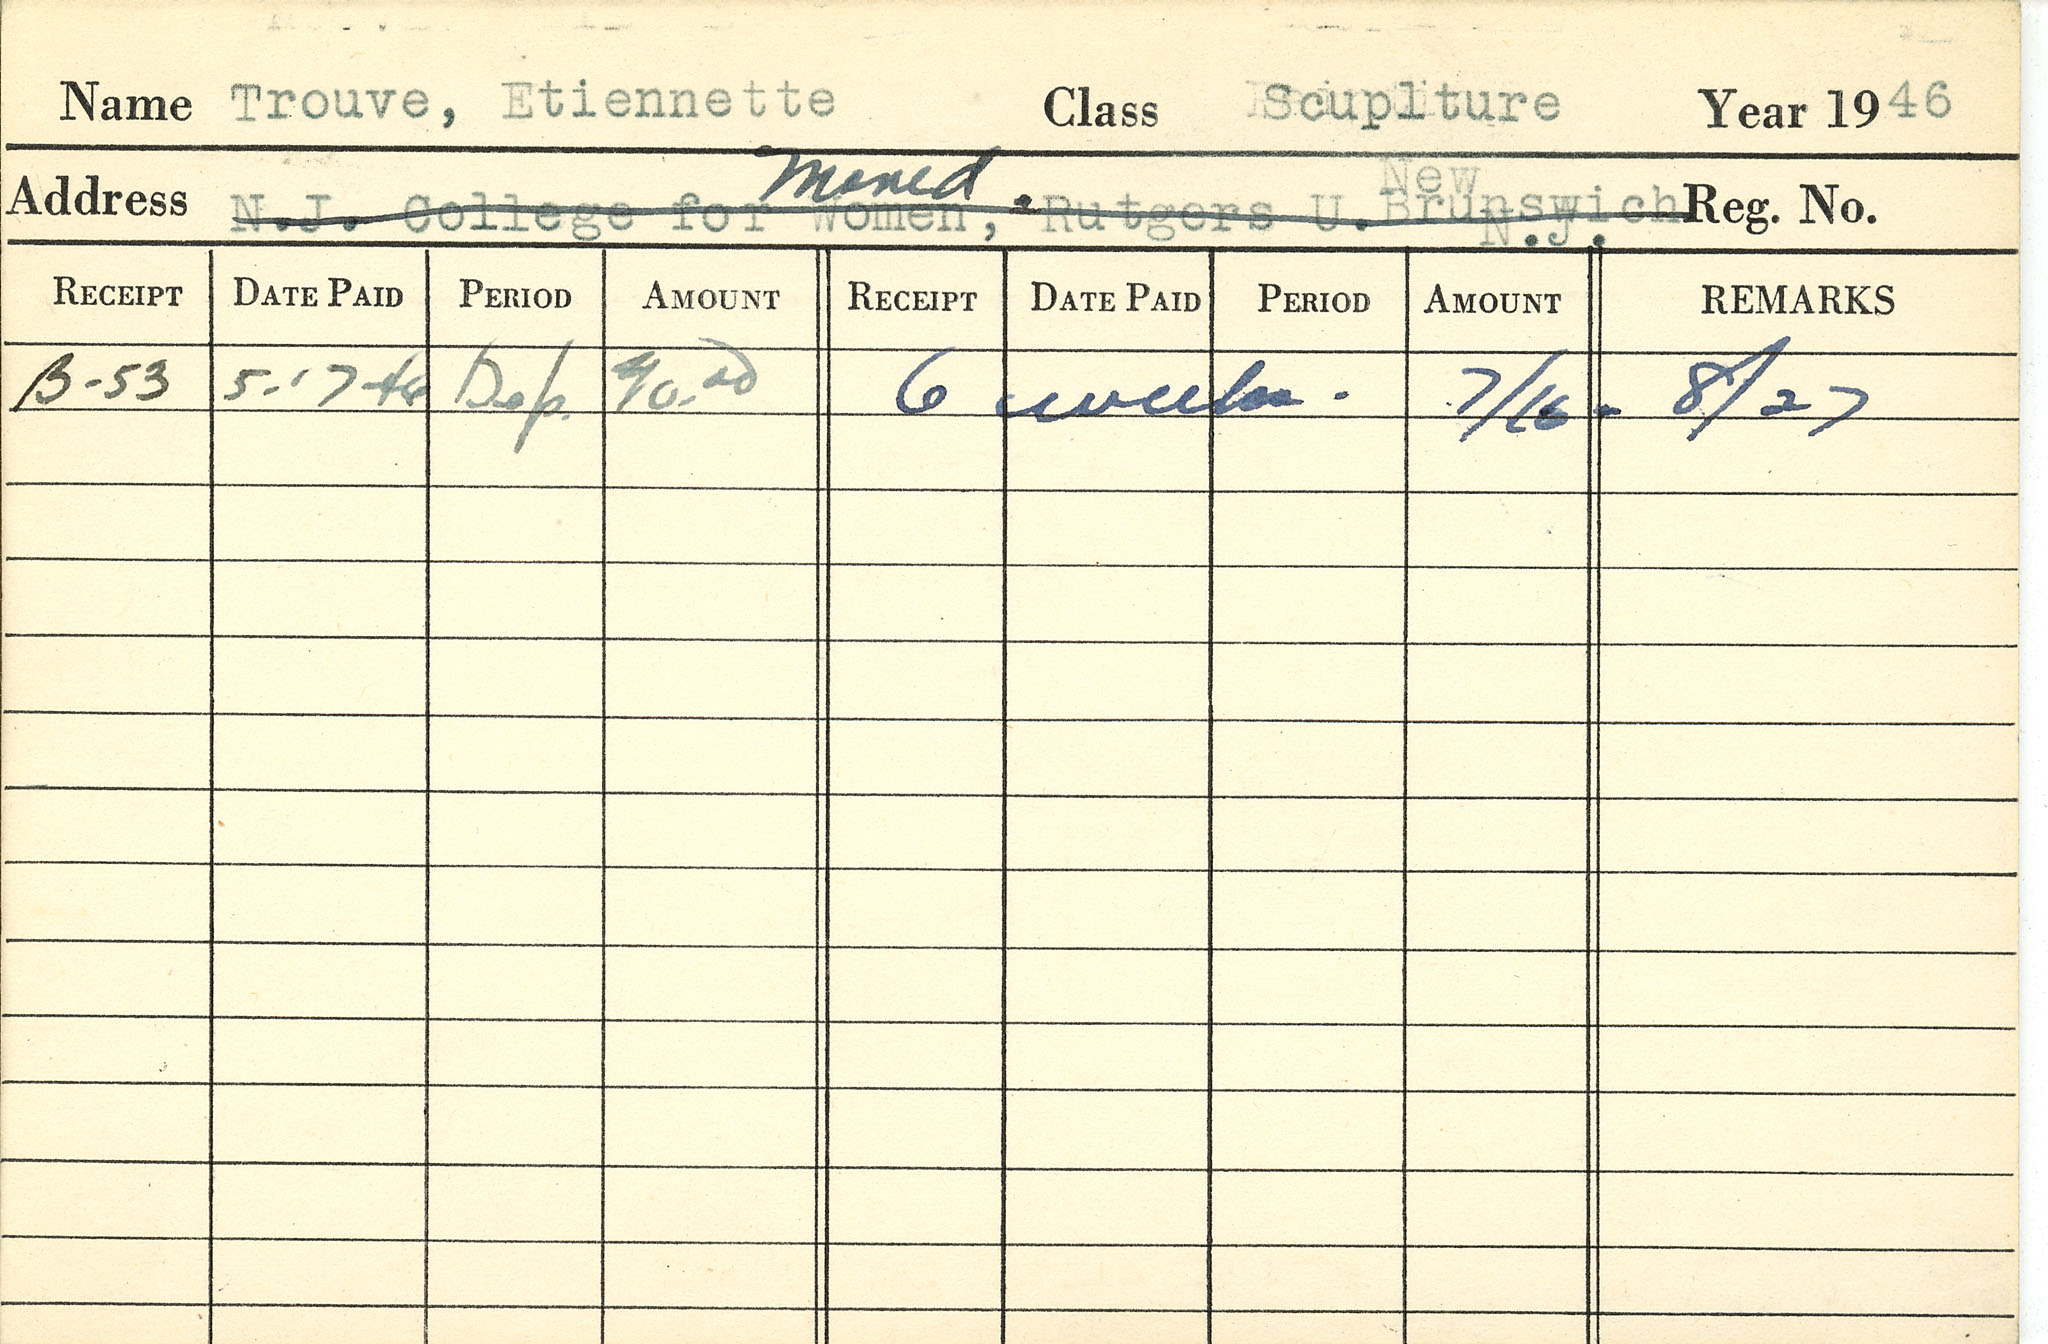 Name Trouve, Etiennette Class Scuplture Year 1946
Moved. New
Address N.J. College for Women, Rutgers U. Brunswich Reg. No.
N.J.
RECEIPT DATE PAID PERIOD AMOUNT RECEIPT DATE PAID PERIOD AMOUNT REMARKS
B-53 5-17-46 Dep. 40.00 6 weeks. 7/16 - 8/27